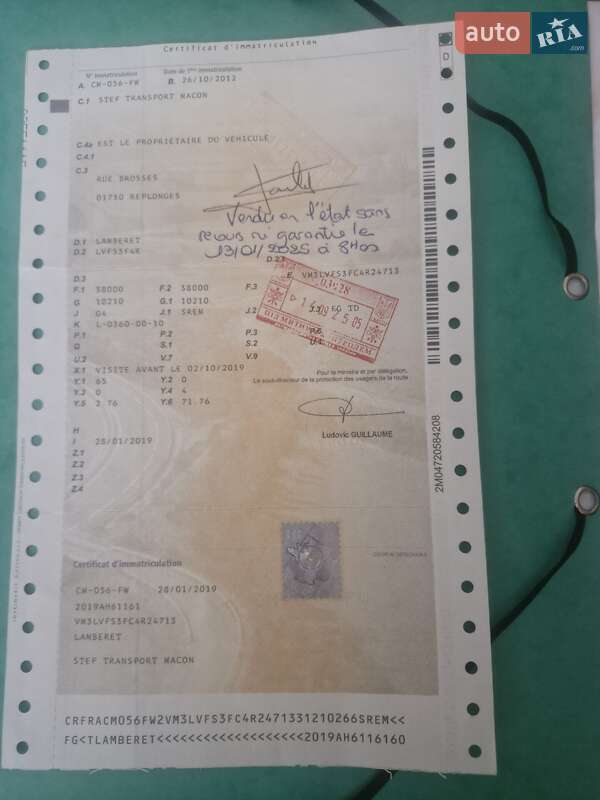 auto RIA .com
Certificat d'immatriculation
N° immatriculation Date de 1ère immatriculation
A. CW-056-FW B. 26/10/2012
C.1 STEF TRANSPORT MACON
C.4a EST LE PROPRIÉTAIRE DU VEHICULE
C.4.1
C.3
RUE BROSSES
01750 REPLONGES
Vendu en l'état sans
recours ni garantie le
D.1 LAMBERET
D.2 LVFS3F4R
D.2.1
E. VM3LVFS3FC4R24713
D.3
F.1 38000 F.2 38000 F.3
G 10210 G.1 10210
J O4 J.1 SREM J.2 J.3 FG TD
K L-0360-00-10
P.1 P.2 P.3 P.6
Q S.1 S.2 U.1
U.2 V.7 V.9
X.1 VISITE AVANT LE 02/10/2019
Y.1 65 Y.2 0
Y.3 0 Y.4 4
Y.5 2.76 Y.6 71.76
Pour le ministre et par délégation,
Le sous-directeur de la protection des usagers de la route
Ludovic GUILLAUME
H
I 28/01/2019
Z.1
Z.2
Z.3
Z.4
2M04720584208
Certificat d'immatriculation
CW-056-FW 28/01/2019
2019AH61161
VM3LVFS3FC4R24713
LAMBERET
STEF TRANSPORT MACON
CRFRACM056FW2VM3LVFS3FC4R2471331210266SREM<<
FG<TLAMBERET<<<<<<<<<<<<<<<<<<<<2019AH6116160